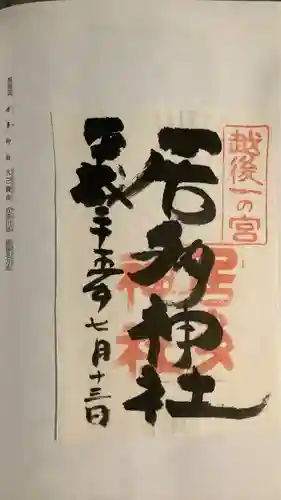 越後一の宮
居多神社
居多
神社
平成二十五年七月十三日